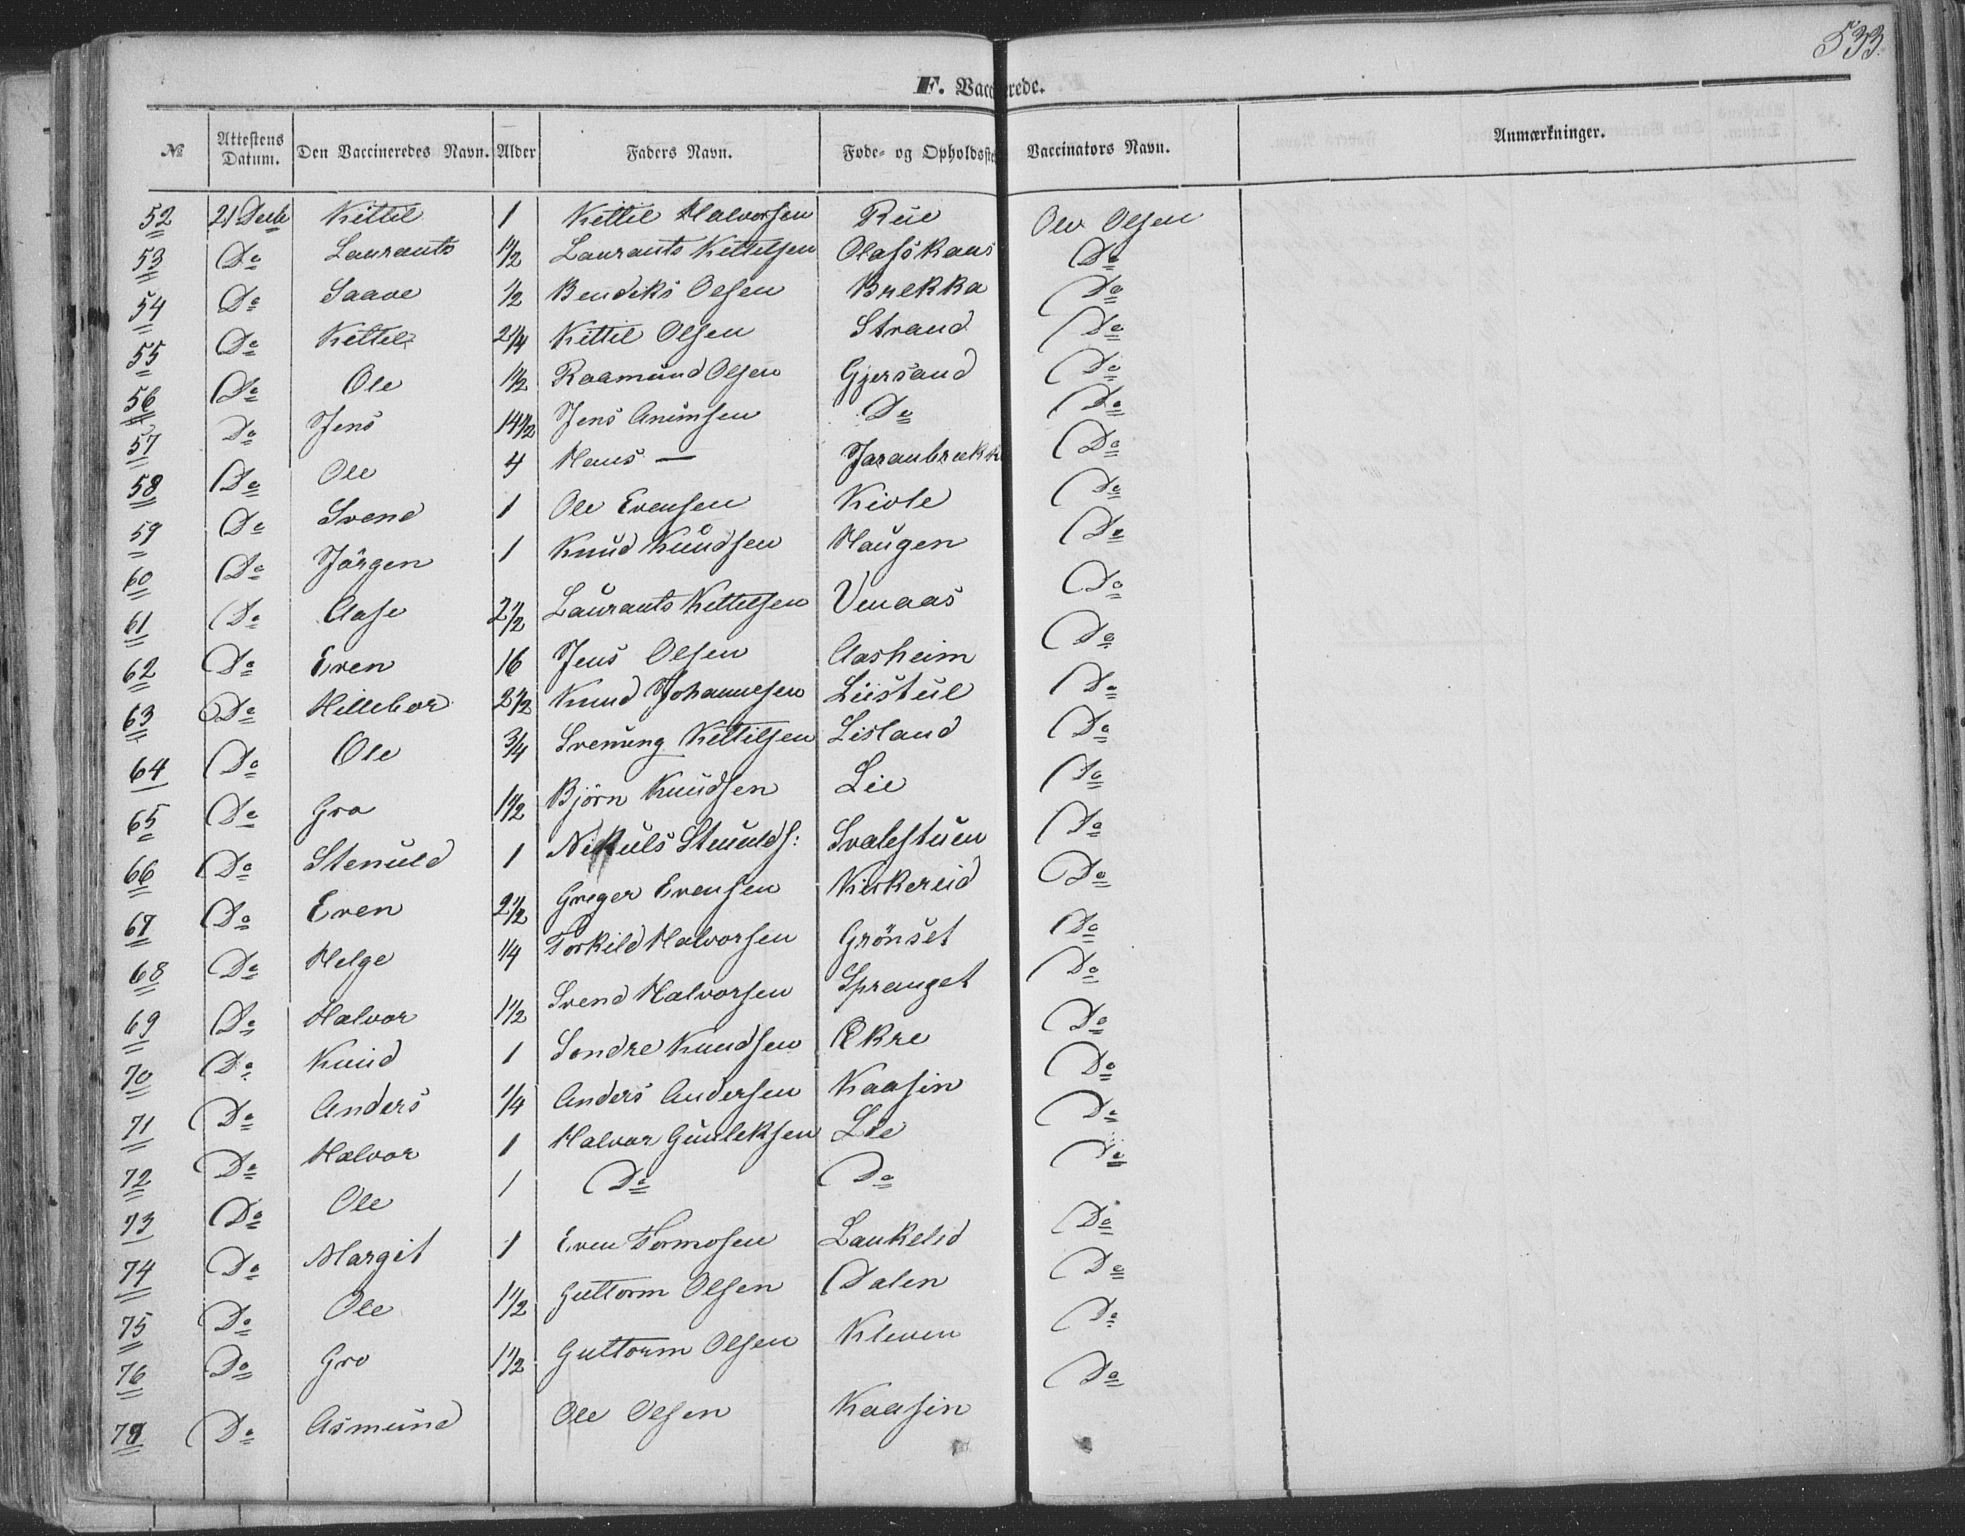 533.
F. Vaccinerede.
№ | Attestens Datum. | Den Vaccineredes Navn. | Alder | Faders Navn. | Føde- og Opholdsste | Vaccinators Navn. | Anmærkninger.
52 21 Decbr Kittil 1 Kittil Halvorsen Rue Ole Olsen
53 Do Laurants 1 1/2 Laurants Kittilsen Olafskaas Do
54 Do Saave 1/2 Bendiks Olsen Brekka Do
55 Do Kittil 2 1/4 Kittil Olsen Strand Do
56 Do Ole 1 1/2 Raamund Olsen Gjersand Do
57 Do Jens 14 1/2 Jens Anumsen Do Do
58 Do Ole 4 Hans — Jaranbrekk Do
59 Do Svend 1 Ole Evensen Kivle Do
60 Do Jörgen 1 Knud Knudsen Haugen Do
61 Do Aase 2 1/2 Laurants Kittilsen Venaas Do
62 Do Even 16 Jens Olsen Aasheim Do
63 Do Hillebor 2 1/2 Knud Johannesen Liistul Do
64 Do Ole 3/4 Svenung Kittilsen Lisland Do
65 Do Gro 1 1/2 Björn Knudsen Lie Do
66 Do Stenuld 1 Nikuls Stenulds: Svalestuen Do
67 Do Even 2 1/2 Greger Evensen Kirkereid Do
68 Do Helge 1/4 Torkild Halvorsen Grönset Do
69 Do Halvor 1 1/2 Svend Halvorsen Spranget Do
70 Do Knud 1 Sondre Knudsen Ekre Do
71 Do Anders 1/4 Anders Andersen Kaasin Do
72 Do Halvor 1 Halvor Gunleksen Lie Do
73 Do Ole 1 Do Do Do
74 Do Margit 1 Even Tormosen Laukelid Do
75 Do Ole 1 1/2 Guttorm Olsen Dalen Do
76 Do Gro 1 1/2 Guttorm Olsen Kleven Do
78 Do Asmund Ole Olsen Kaasin Do